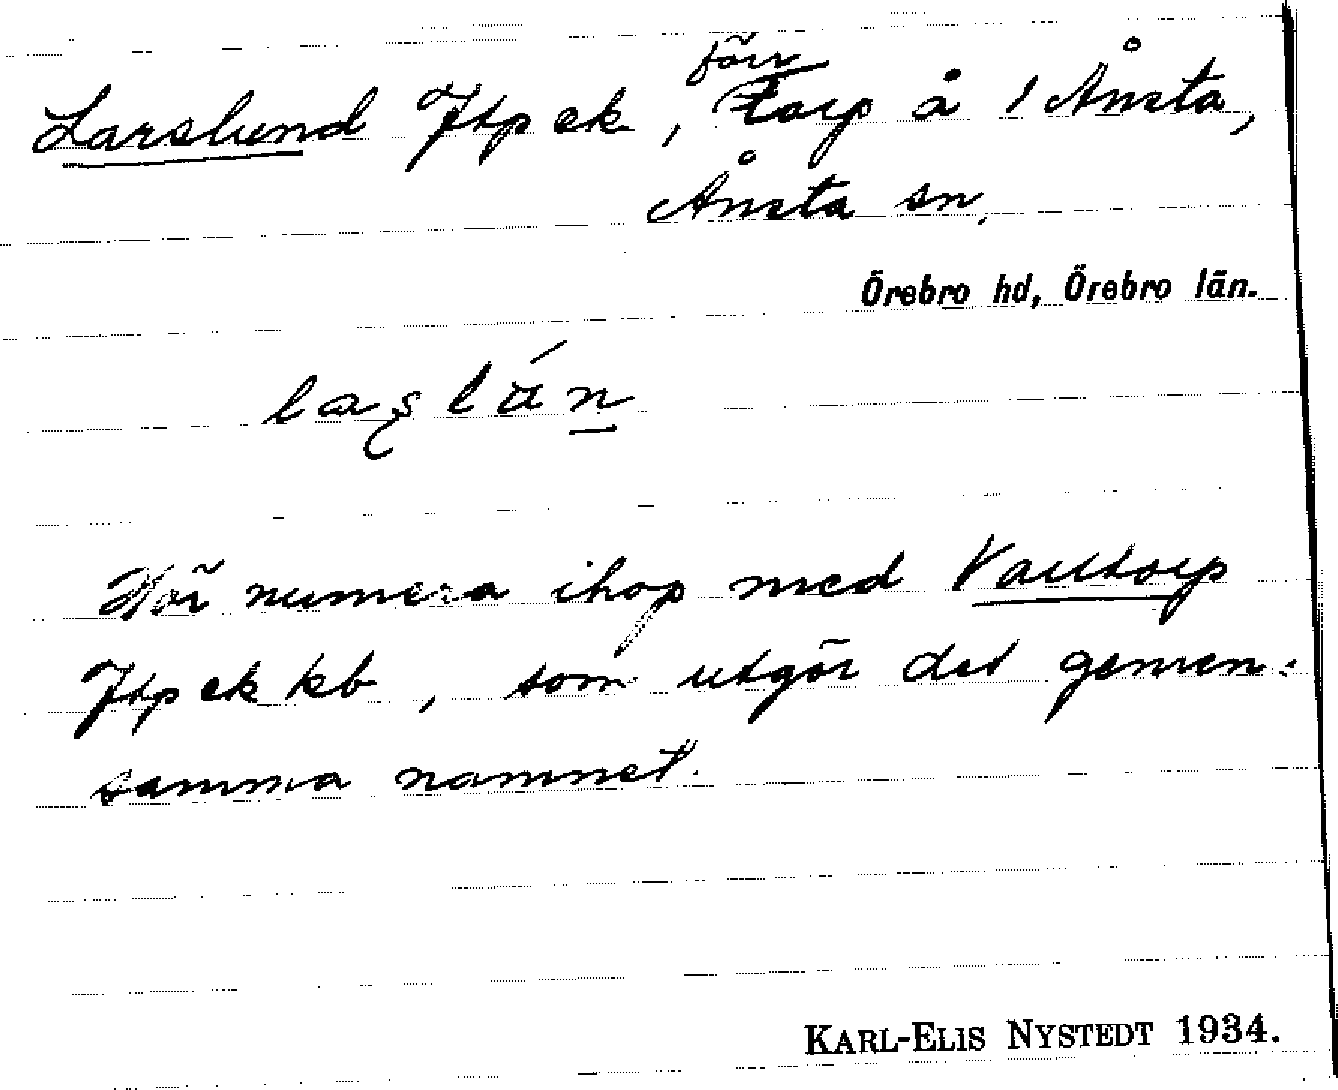 förr
Larslund Jtp ek, Torp å 1 Ånsta,
Ånsta sn.
Örebro hd, Örebro län.
Hör numera ihop med
Jtp ek kb, som utgör det gemen-
samma namnet.
KARL-ELIS NYSTEDT 1934.